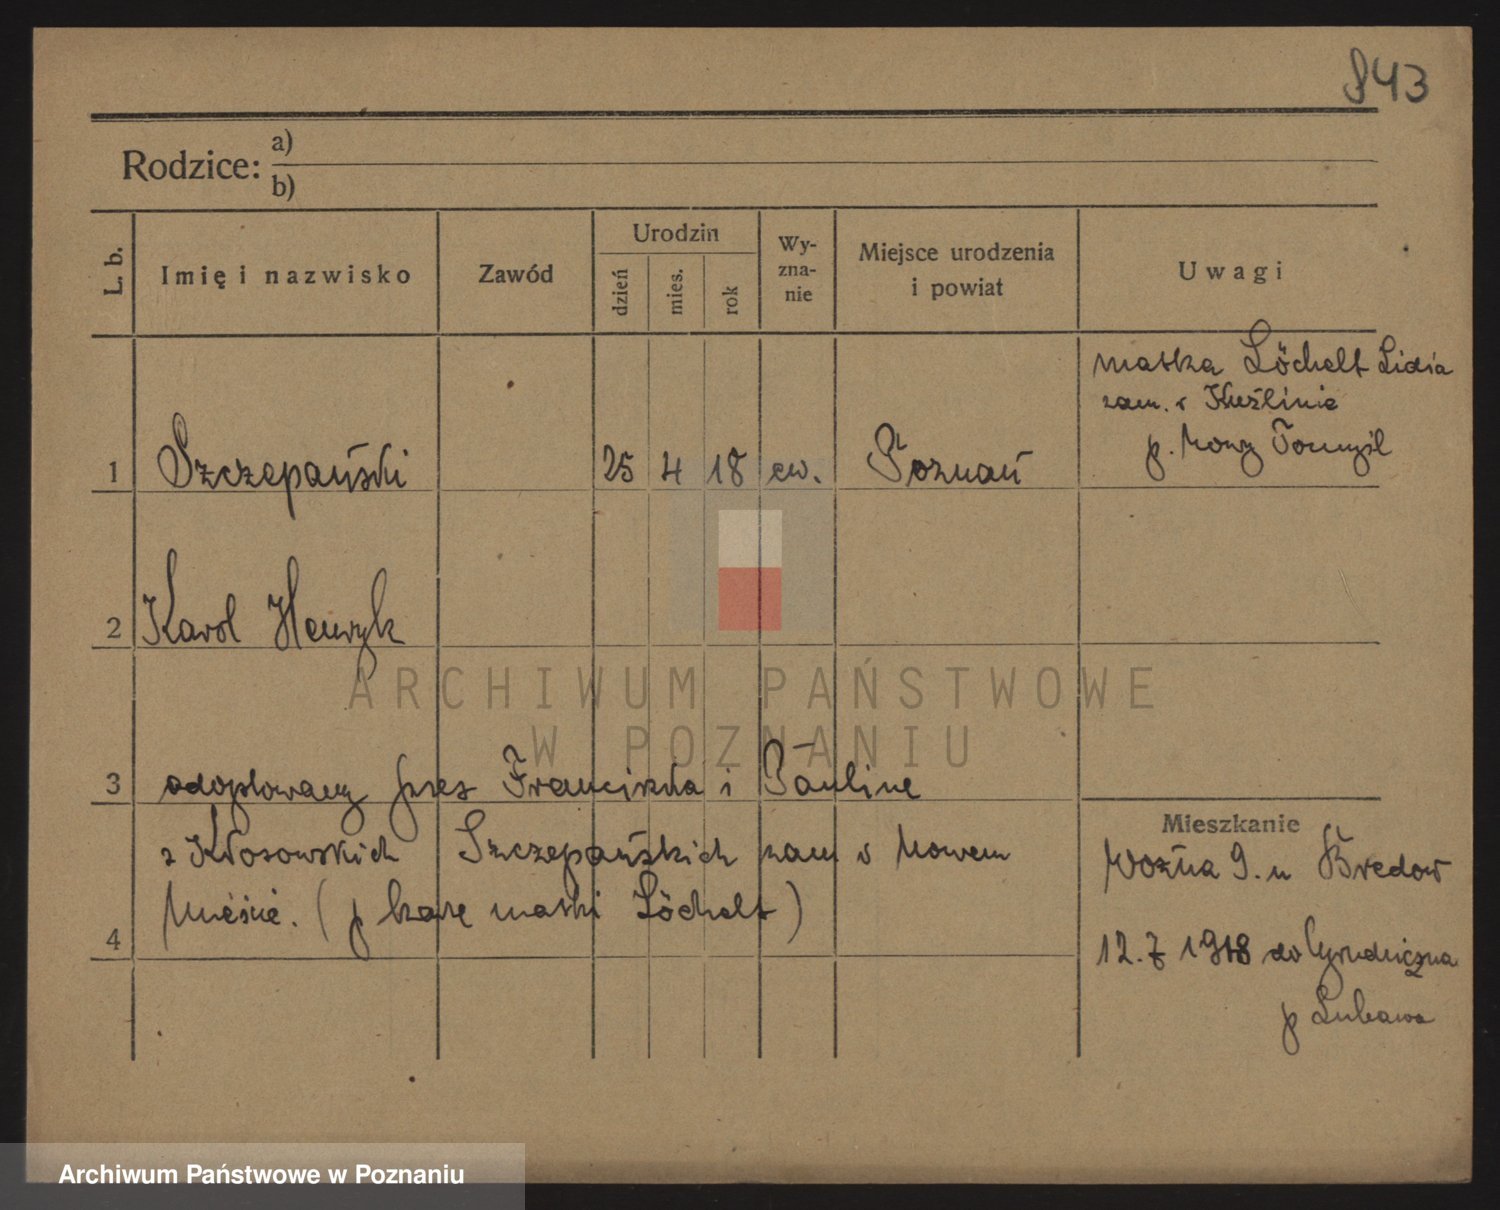 843
Rodzice: a)
b)
L. b. Imię i nazwisko Zawód Urodzin dzień mies. rok Wy-zna-nie Miejsce urodzenia i powiat Uwagi
matka Löchelt Lidia
zam. w Kuślinie
p. Nowy Tomyśl
1 Szczepański 25 4 18 ew. Poznań
2 Karol Henryk
ARCHIWUM PAŃSTWOWE
W POZNANIU
3 adoptowany przez Franciszka i Paulinę
z Kłosowskich Szczepańskich zam w Nowem
Mieście. (p kartę matki Löchelt)
4
Mieszkanie
Woźna 9. u Bredow
12.7 1918 do
p Lubawa
Archiwum Państwowe w Poznaniu